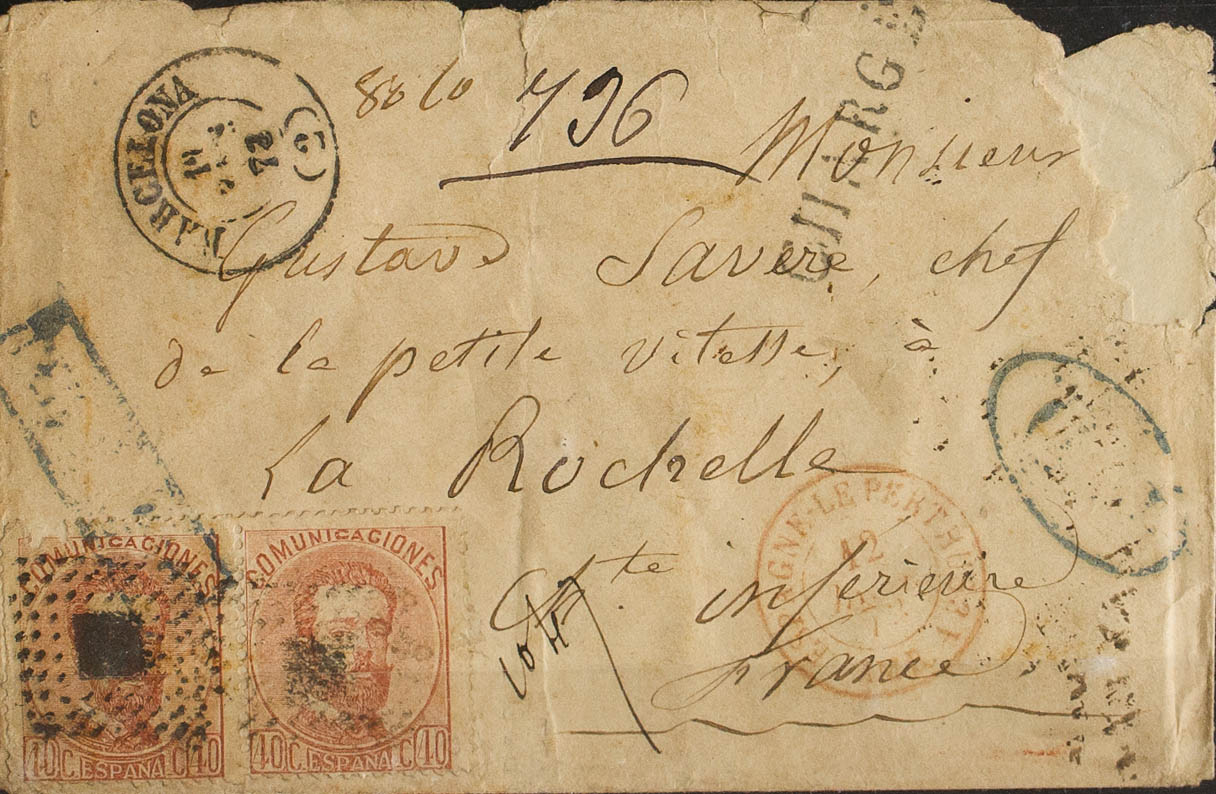 BARCELONA
(5)
72
796
CHARGE
Monsieur
Gustave Savere, chef
de la petite vitesse, à
La Rochelle
Ch.te inférieure
France
ESPAGNE-LE PERTHUS
12
COMUNICACIONES
40 C. ESPANA C 40
COMUNICACIONES
40 C. ESPANA C 40